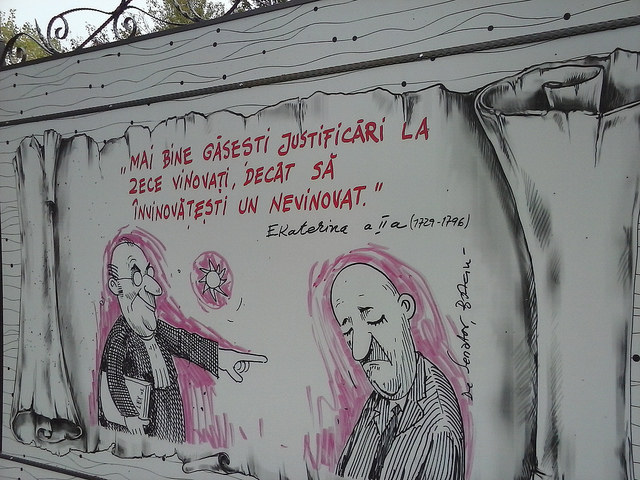 „MAI BINE GĂSEȘTI JUSTIFICĂRI LA
ZECE VINOVAȚI, DECÂT SĂ
ÎNVINOVĂȚEȘTI UN NEVINOVAT.”
Ekaterina a II a (1729-1796)
de Senator,